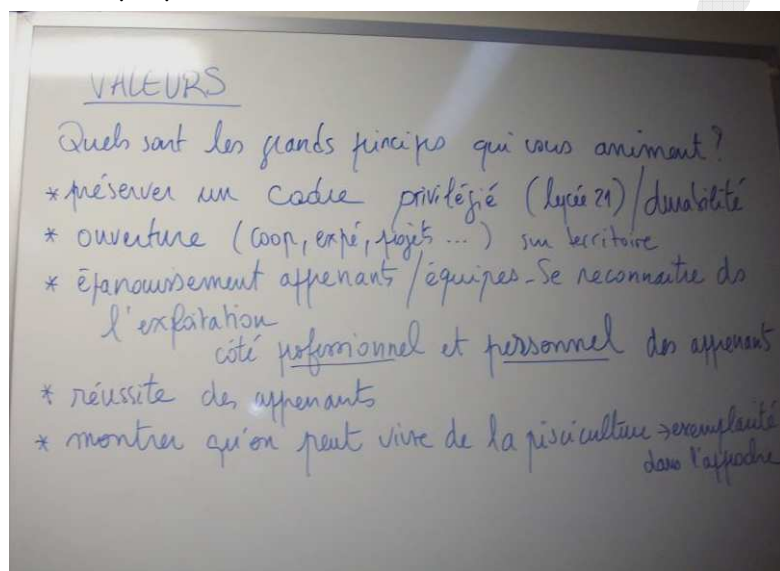 VALEURS
Quels sont les grands principes qui vous animent ?
* préserver un cadre privilégié (lycée 21) / durabilité
* ouverture (coop, expé, projets ...) sur territoire
* épanouissement apprenants / équipes - Se reconnaitre ds
l'exploitation
côté professionnel et personnel des apprenants
* réussite des apprenants
* montrer qu'on peut vivre de la pisciculture → exemplarité
dans l'approche